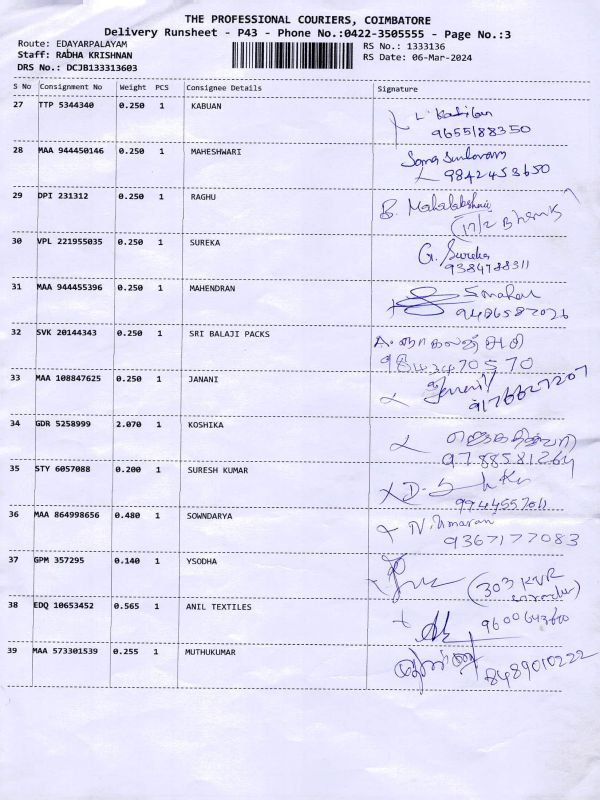 THE PROFESSIONAL COURIERS, COIMBATORE
Delivery Runsheet - P43 - Phone No.:0422-3505555 - Page No.:3
Route: EDAYARPALAYAM
RS No.: 1333136
Staff: RADHA KRISHNAN
RS Date: 06-Mar-2024
DRS No.: DCJB133313603
S No Consignment No Weight PCS Consignee Details Signature
27 TTP 5344340 0.250 1 KABUAN
9655188350
28 MAA 944450146 0.250 1 MAHESHWARI
9842453650
29 DPI 231312 0.250 1 RAGHU B. Mahalakshmi
30 VPL 221955035 0.250 1 SUREKA G. Sureka
9384788311
31 MAA 944455396 0.250 1 MAHENDRAN
9486587026
32 SVK 20144343 0.250 1 SRI BALAJI PACKS
33 MAA 108847625 0.250 1 JANANI
9176627207
34 GDR 5258999 2.070 1 KOSHIKA
9788581264
35 STY 6057088 0.200 1 SURESH KUMAR
36 MAA 864998656 0.480 1 SOWNDARYA
9367177083
37 GPM 357295 0.140 1 YSODHA
303 KVR
38 EDQ 10653452 0.565 1 ANIL TEXTILES
39 MAA 573301539 0.255 1 MUTHUKUMAR
8489010222